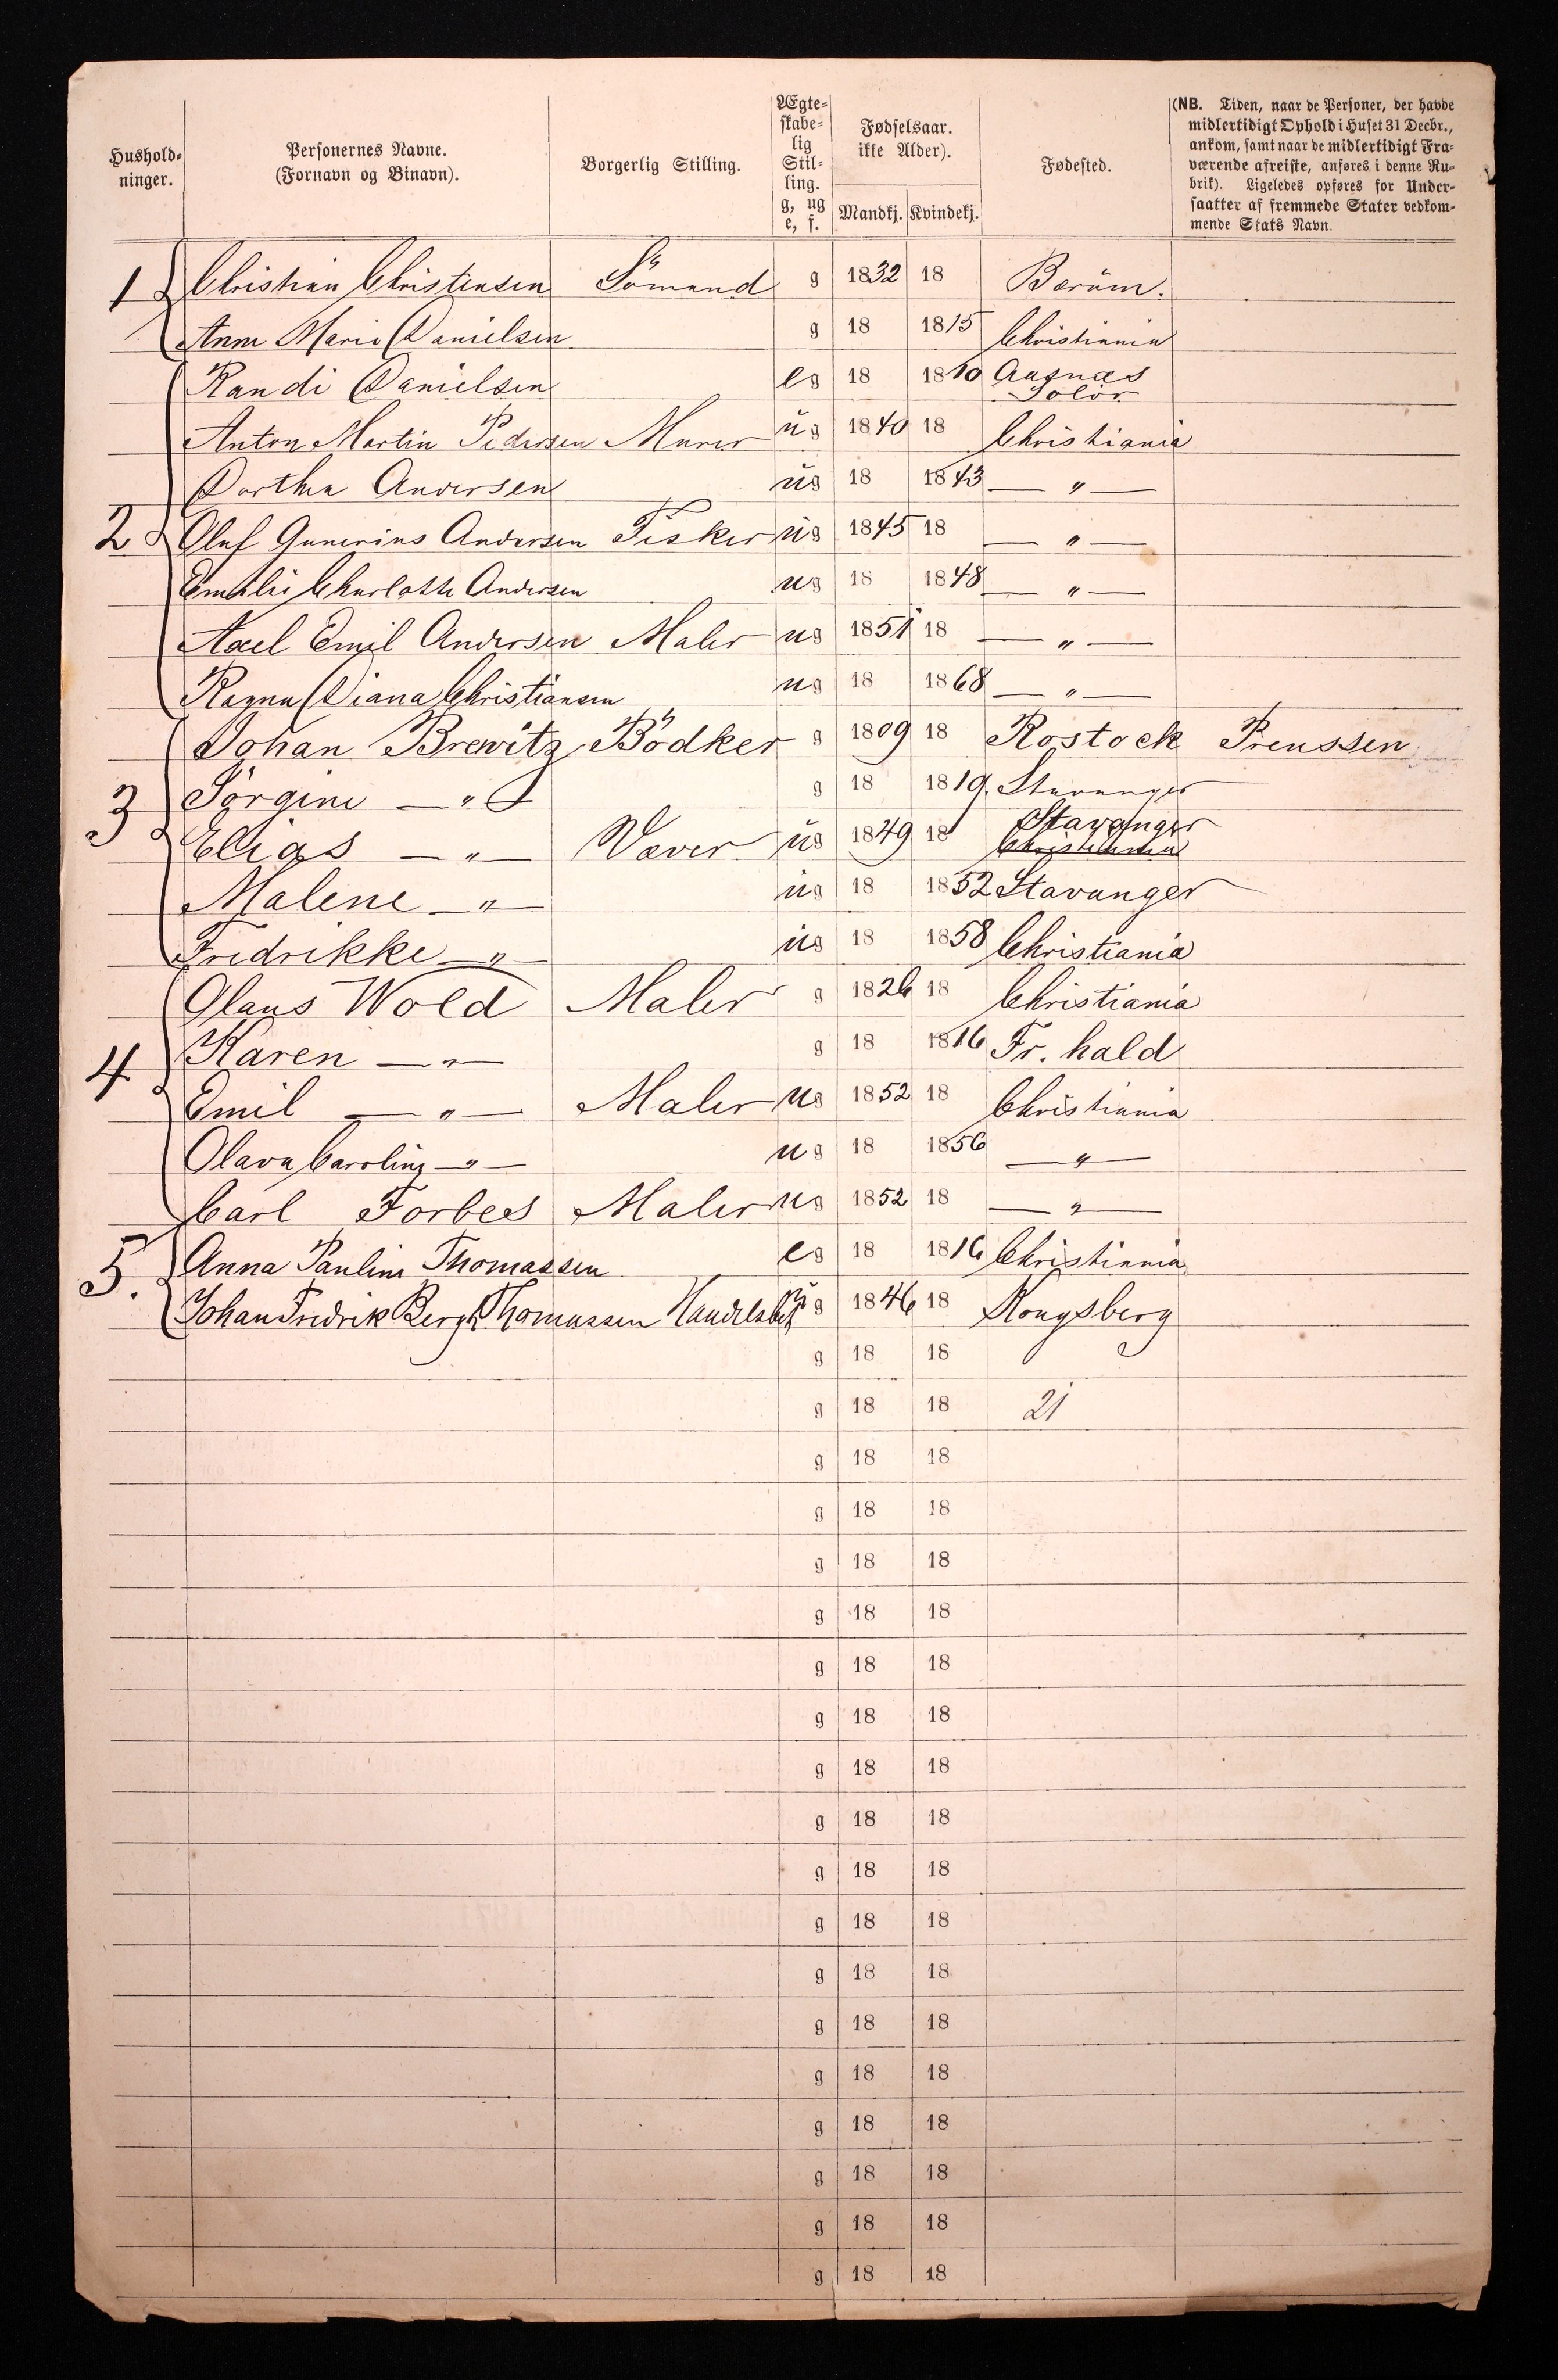 Hushold-
ninger.
Personernes Navne.
(Fornavn og Binavn).
Borgerlig Stilling.
Ægte-
skabe-
lig
Stil-
ling.
g, ug
e, f.
Fødselsaar.
ikke Alder).
Mandkj. Kvindekj.
Fødested.
(NB. Tiden, naar de Personer, der havde
midlertidigt Ophold i Huset 31 Decbr.,
ankom, samt naar de midlertidigt Fra-
værende afreiste, anføres i denne Ru-
brik). Ligeledes opføres for Under-
saatter af fremmede Stater vedkom-
mende Stats Navn.
1 Christian Christensen Sömand g 1832 18 Bærum.
Anne Marie Danielsen g 18 1815 Christiania
Randi Danielsen eg 18 1810 Aasnæs Solör
Anton Martin Pedersen Murer ug 1840 18 Christiania
Dorthea Andersen ug 18 1843 — " —
2 Oluf Gunerius Andersen Fisker ug 1845 18 — " —
Emilie Charlotte Andersen ug 18 1848 — " —
Axel Emil Andersen Maler ug 1851 18 — " —
Ragna Diana Christiansen ug 18 1868 — " —
Johan Brewitz Bödker g 1809 18 Rostock Preussen
Jörgine — " — g 18 1819. Stavanger
3 Elias — " — Væver ug 1849 18 Stavanger Christiania
Malene — " — ug 18 1852 Stavanger
Fredrikke — " — ug 18 1858 Christiania
Olaus Wold Maler g 1826 18 Christiania
4 Karen — " — g 18 1816 Fr. hald
Emil — " — Maler ug 1852 18 Christiania
Olava Caroline — " — ug 18 1856 — " —
Carl Forbes Maler ug 1852 18 — " —
5. Anna Pauline Thomassen eg 18 1816 Christiania
Johan Fredrik Bergh Thomassen Handelsbet ug 1846 18 Kongsberg
g 18 18
g 18 18 21
g 18 18
g 18 18
g 18 18
g 18 18
g 18 18
g 18 18
g 18 18
g 18 18
g 18 18
g 18 18
g 18 18
g 18 18
g 18 18
g 18 18
g 18 18
g 18 18
g 18 18